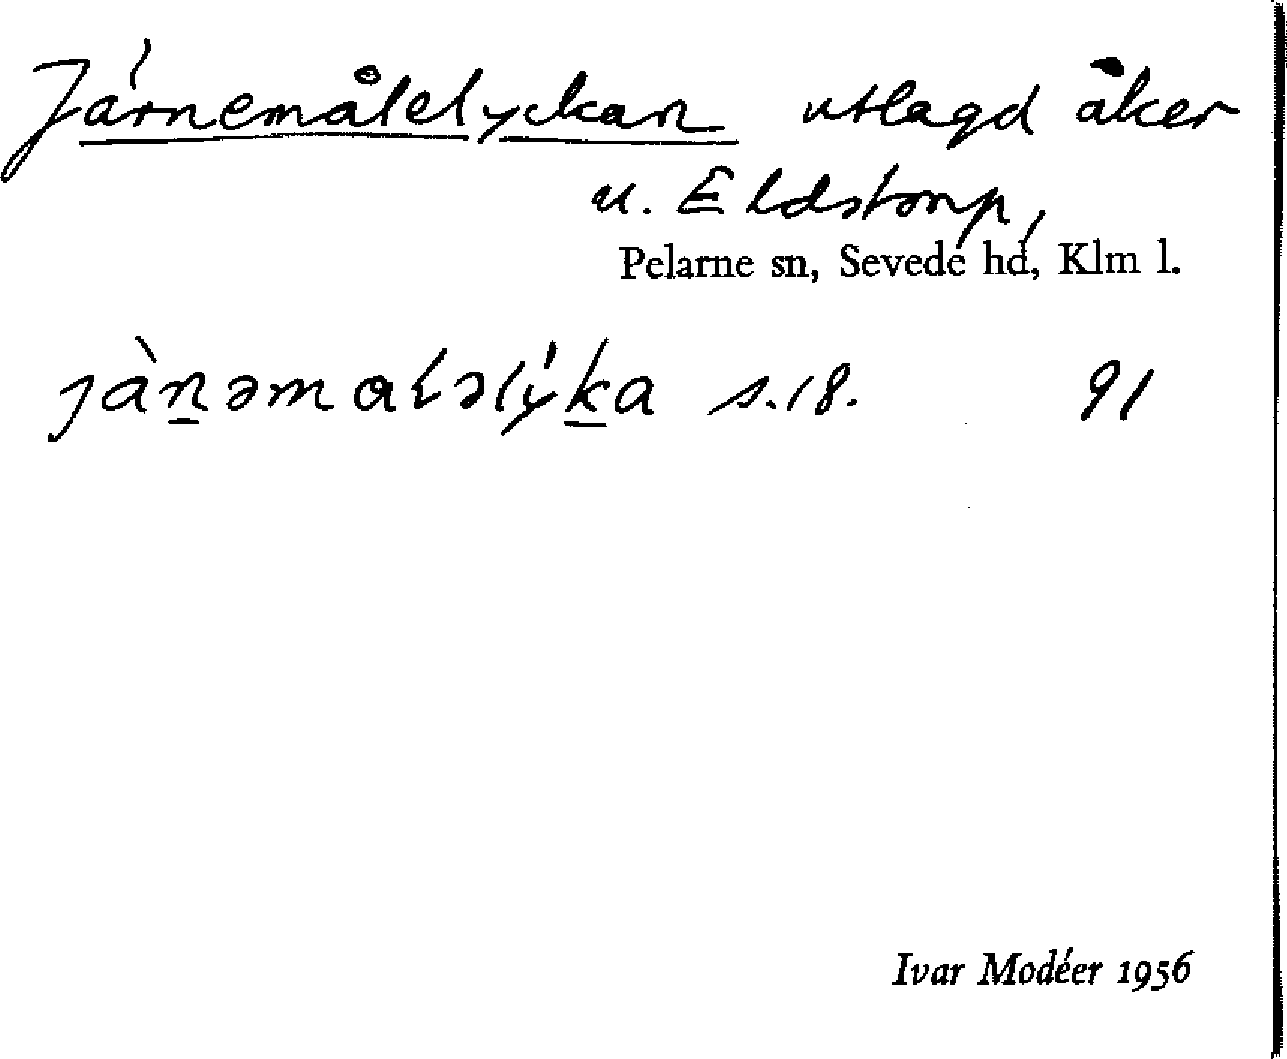 Järnemålelyckan utlagd åker
u. Eldstorp,
Pelarne sn, Sevede hd, Klm l.
s. 18. 91
Ivar Modéer 1956